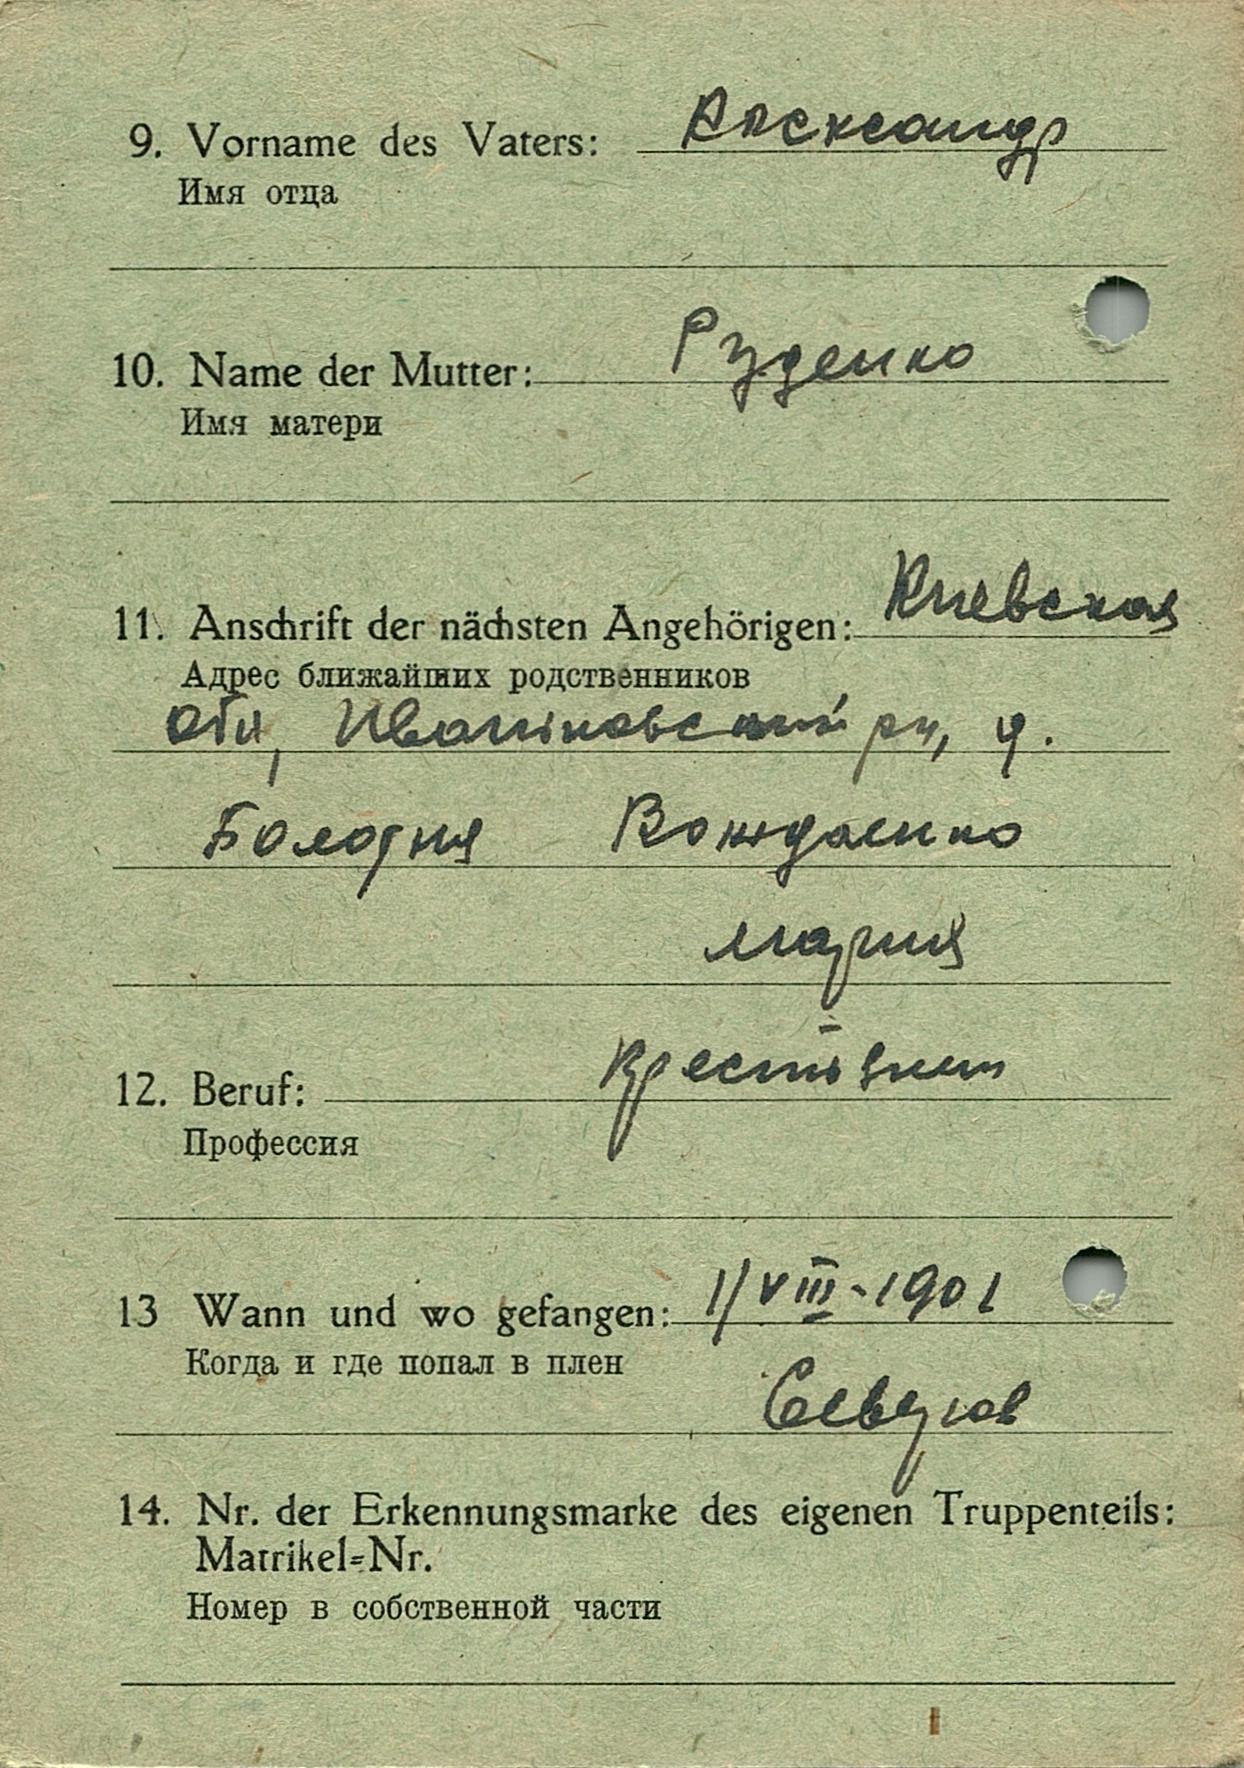 9. Vorname des Vaters: Александр
Имя отца
10. Name der Mutter: Руденко
Имя матери
11. Anschrift der nächsten Angehörigen: Киевская
Адрес ближайших родственников
обл, рн,
Болотня
мария
12. Beruf:
Профессия
13 Wann und wo gefangen: VIII-1901
Когда и где попал в плен
14. Nr. der Erkennungsmarke des eigenen Truppenteils:
Matrikel=Nr.
Номер в собственной части